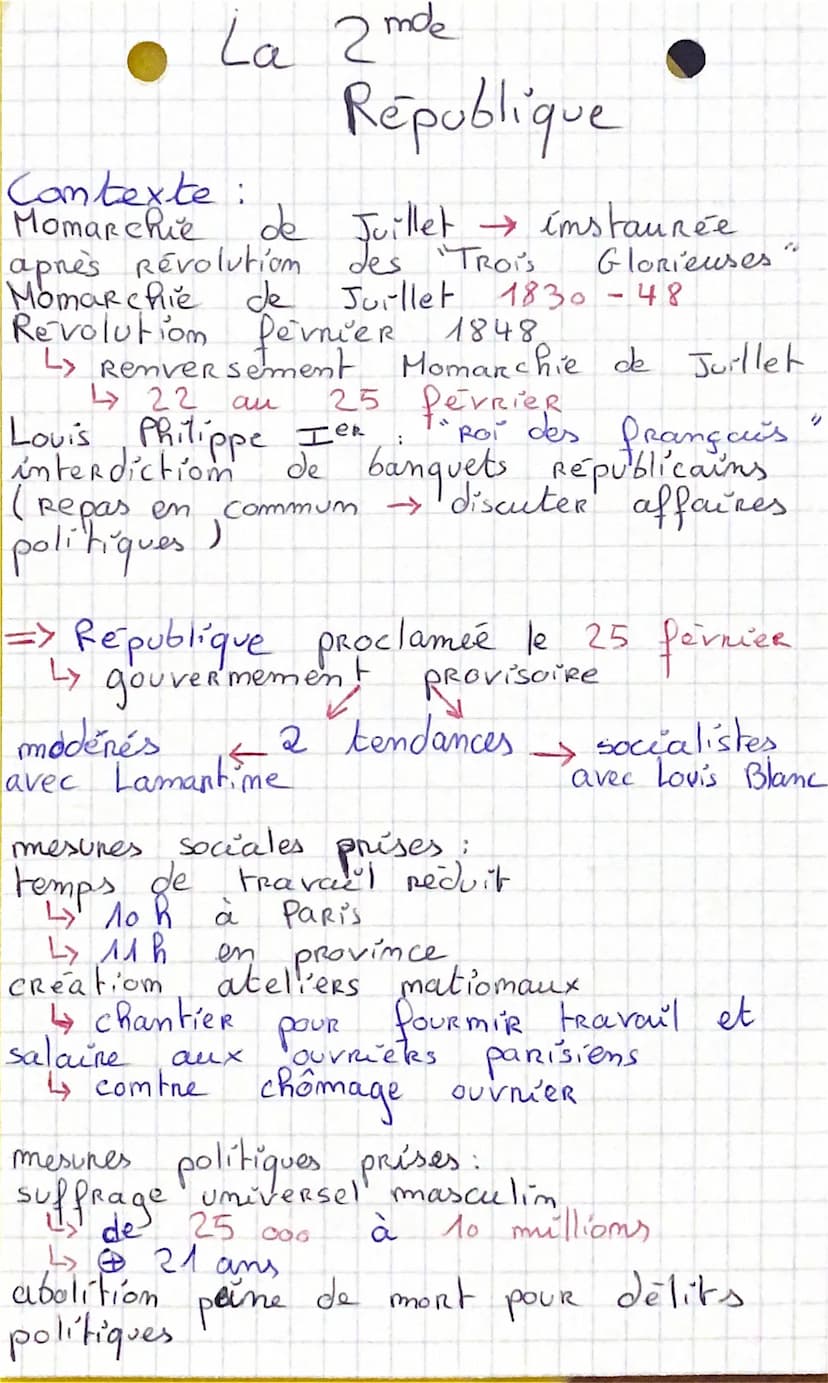 La 2mde
République
Contexte :
Monarchie de Juillet → instaurée
après Révolution des "Trois Glorieuses"
Monarchie de Juillet 1830 - 48
Révolution février 1848
↳ renversement Monarchie de Juillet
↳ 22 au 25 février
Louis Philippe Ier : "roi des français"
interdiction de banquets républicains
(repas en commun → discuter affaires
politiques)
=> République proclamée le 25 février
↳ gouvernement provisoire
↙ ↘
modérés ← 2 tendances → socialistes
avec Lamartine avec Louis Blanc
mesures sociales prises :
temps de travail réduit
↳ 10 h à Paris
↳ 11 h en province
création ateliers nationaux
↳ chantier pour fournir travail et
salaire aux ouvriers parisiens
↳ contre chômage ouvrier
mesures politiques prises :
suffrage universel masculin
↳ de 25 000 à 10 millions
↳ ⊕ 21 ans
abolition peine de mort pour délits
politiques